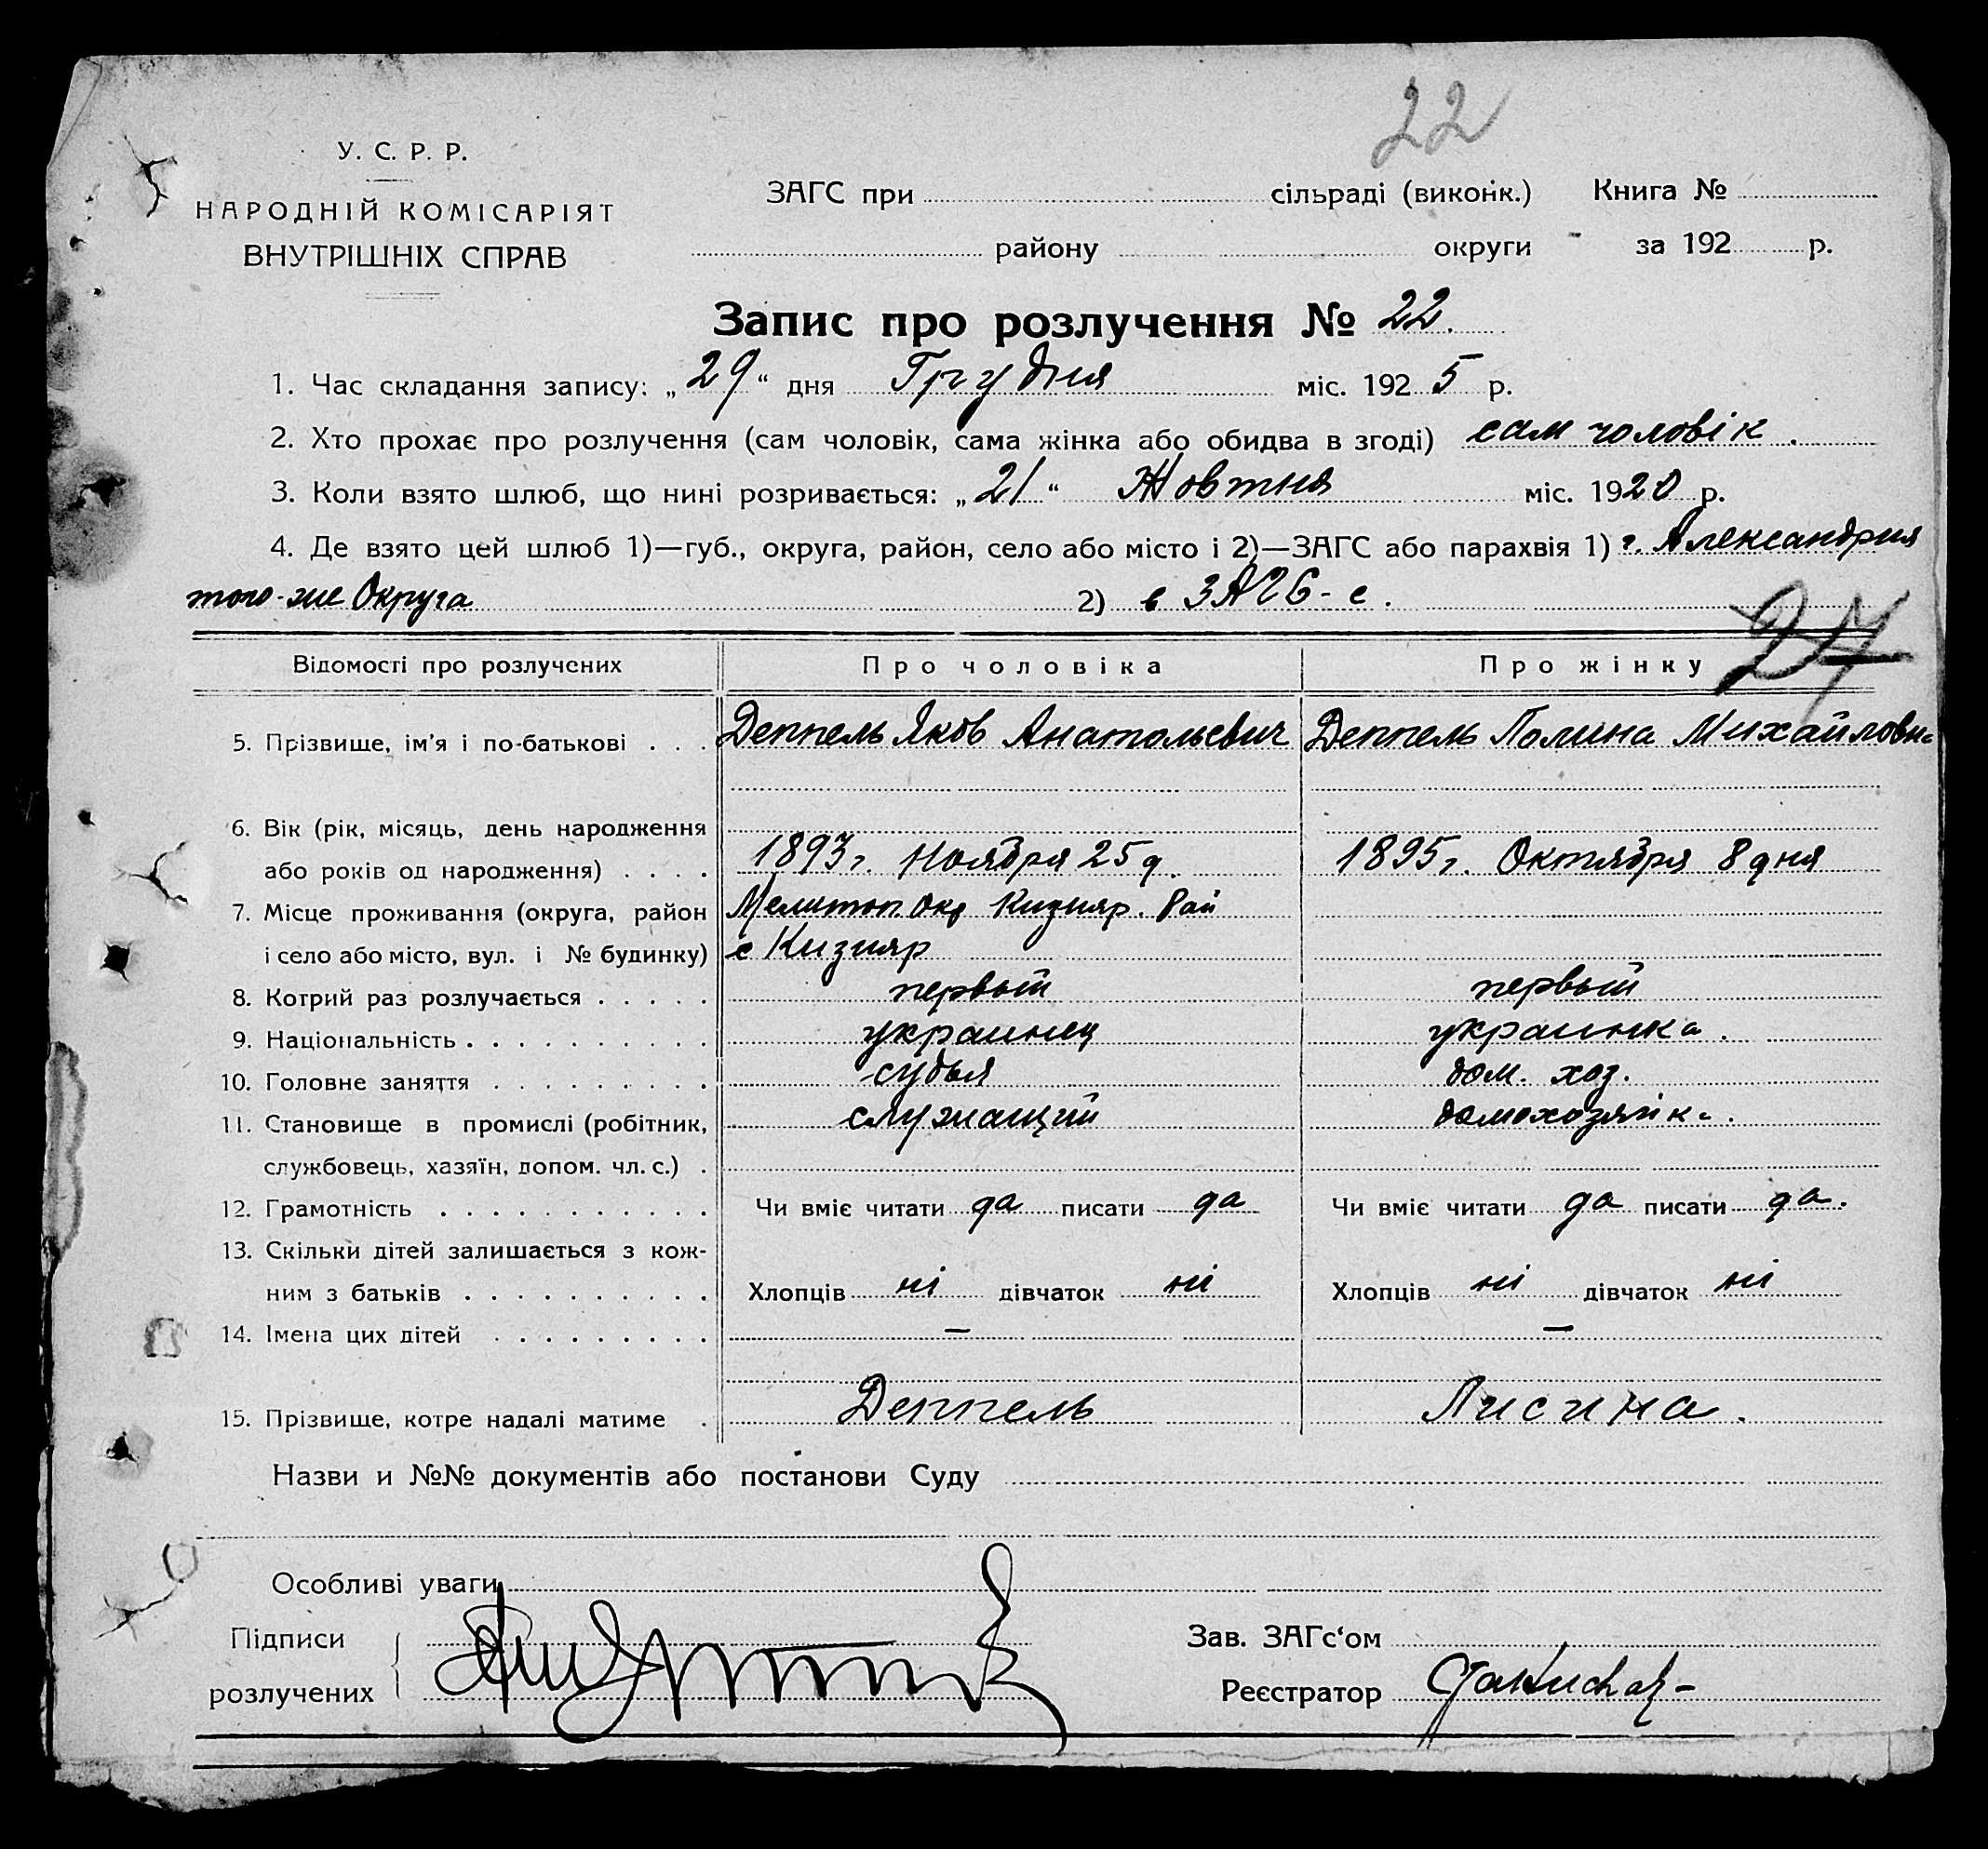 22
У. С. Р. Р.
НАРОДНІЙ КОМІСАРІЯТ
ВНУТРІШНІХ СПРАВ
ЗАГС при сільраді (виконк.) Книга №
району округи за 192 р.
Запис про розлучення № 22.
1. Час складання запису: „29“ дня Грудня міс. 1925 р.
2. Хто прохає про розлучення (сам чоловік, сама жінка або обидва в згоді) сам чоловік.
3. Коли взято шлюб, що нині розривається: „21“ Жовтня міс. 1920 р.
4. Де взято цей шлюб 1)—губ., округа, район, село або місто і 2)—ЗАГС або парахвія 1) г. Александрия
того-же Округа 2) в ЗАГС-е.
27
Відомості про розлучених Про чоловіка Про жінку
5. Прізвище, ім'я і по-батькові . . . Деппель Яков Анатольевич Деппель Полина Михайловна
6. Вік (рік, місяць, день народження
або років од народження) . . . . 1893г. Ноября 25д. 1895г. Октября 8 дня
7. Місце проживання (округа, район Мелитоп. Окр Кизияр. Рай
і село або місто, вул. і № будинку) с Кизияр
8. Котрий раз розлучається . . . . . первый первый
9. Національність . . . . . . . . . . украинец украинка.
10. Головне заняття . . . . . . . . . судья дом. хоз.
11. Становище в промислі (робітник, служащий домохозяйка.
службовець, хазяїн, допом. чл. с.) .
12. Грамотність . . . . . . . . . . . Чи вміє читати да писати да Чи вміє читати да писати да.
13. Скільки дітей залишається з кож-
ним з батьків . . . . . . . . . . Хлопців ні дівчаток ні Хлопців ні дівчаток ні
14. Імена цих дітей . . . . . . . . . — —
15. Прізвище, котре надалі матиме . Деппель Лисина.
Назви и №№ документів або постанови Суду
Особливі уваги
Підписи Зав. ЗАГс‘ом
розлучених Реєстратор